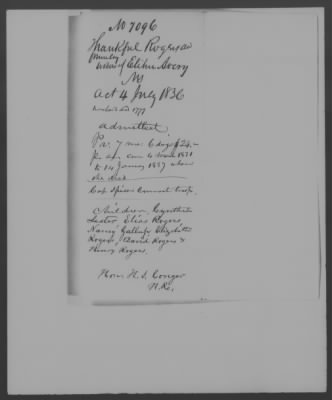 No 7096
Thankful Rogers
formerly
widow of Elihu Avery
act 4 July 1836
1777
admitted.
Pr. 7 mo. 6 days $24.
pr. an. com 4 March 1831
to 14 January 1837 when
she died
Cap Spicer Connect troops.
Children, Cynthia
Lester Elias Rogers,
Nancy Gallup, Elizabeth
Rogers, David Rogers &
Henry Rogers.
Hon. H. S. Conger
H. R.